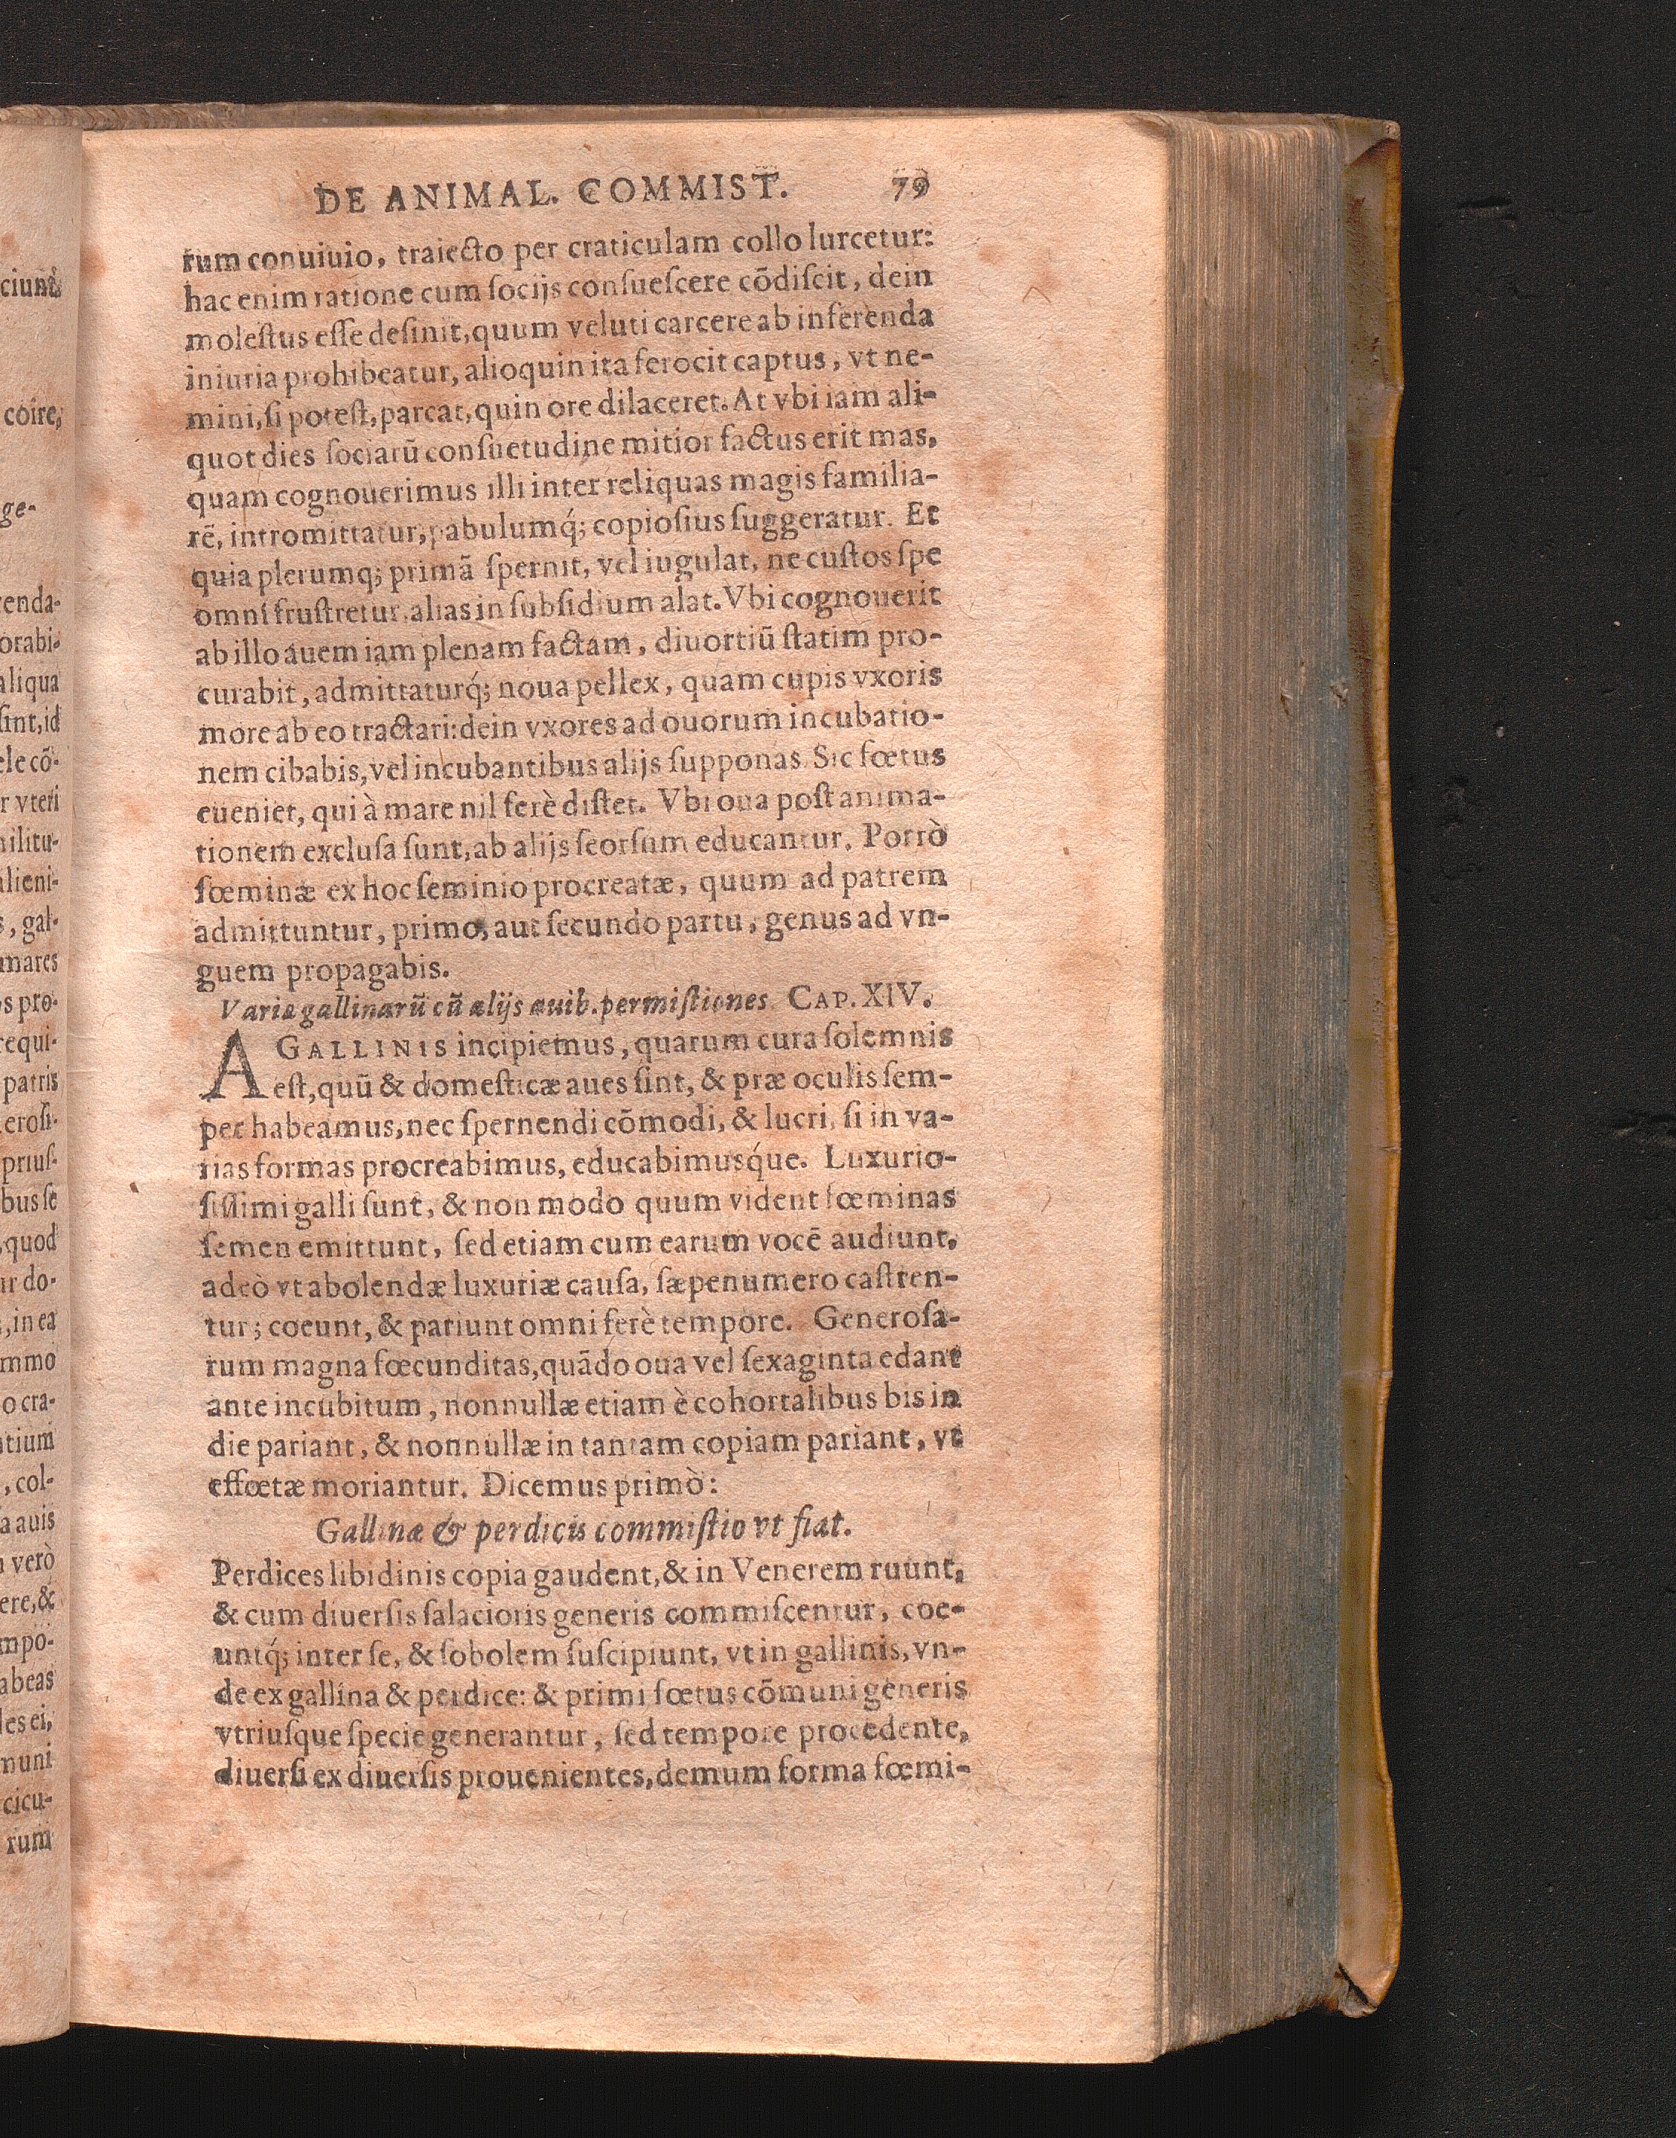 DE ANIMAL. COMMIST. 79
rum conuiuio, traiecto per craticulam collo lurcetur:
hac enim ratione cum socijs consuescere cōdiscit, dein
molestus esse desinit, quum veluti carcere ab inferenda
iniuria prohibeatur, alioquin ita ferocit captus, vt ne-
mini, si potest, parcat, quin ore dilaceret. At vbi iam ali-
quot dies sociarū consuetudine mitior factus erit mas,
quam cognouerimus illi inter reliquas magis familia-
rē, intromittatur, pabulumq́; copiosius suggeratur. Et
quia plerumq; primā spernit, vel iugulat, ne custos spe
omni frustretur, alias in subsidium alat. Vbi cognouerit
ab illo auem iam plenam factam, diuortiū statim pro-
curabit, admittaturq́; noua pellex, quam cupis vxoris
more ab eo tractari: dein vxores ad ouorum incubatio-
nem cibabis, vel incubantibus alijs supponas. Sic fœtus
eueniet, qui à mare nil ferè distet. Vbi oua post anima-
tionem exclusa sunt, ab alijs seorsum educantur. Porrò
fœminæ ex hoc seminio procreatæ, quum ad patrem
admittuntur, primo, aut secundo partu, genus ad vn-
guem propagabis.
Variæ gallinarū cū alijs auib. permistiones. CAP. XIV.
A GALLINIS incipiemus, quarum cura solemnis
est, quū & domesticæ aues sint, & præ oculis sem-
per habeamus, nec spernendi cōmodi, & lucri, si in va-
rias formas procreabimus, educabimusq́ue. Luxurio-
sissimi galli sunt, & non modo quum vident fœminas
semen emittunt, sed etiam cum earum vocē audiunt,
adeò vt abolendæ luxuriæ causa, sæpenumero castren-
tur; coeunt, & pariunt omni ferè tempore. Generosa-
rum magna fœcunditas, quādo oua vel sexaginta edant
ante incubitum, nonnullæ etiam è cohortalibus bis in
die pariant, & nonnullæ in tantam copiam pariant, vt
effœtæ moriantur. Dicemus primò:
Gallinæ & perdicis commistio vt fiat.
Perdices libidinis copia gaudent, & in Venerem ruunt,
& cum diuersis salacioris generis commiscentur, coe-
untq́; inter se, & sobolem suscipiunt, vt in gallinis, vn-
de ex gallina & perdice: & primi fœtus cōmuni generis
vtriusque specie generantur, sed tempore procedente,
diuersi ex diuersis prouenientes, demum forma fœmi-
ciunt
coire,
ge-
orabi-
aliqua
sint, id
ele cō-
r vteri
alieni-
s, gal-
mares
os pro-
requi-
patris
erosi-
prius-
bus se
, quod
ur do-
, in ea
mmo
o cra-
, col-
a auis
verò
ere, &
abeas
les ei,
muni
cicu-
rum